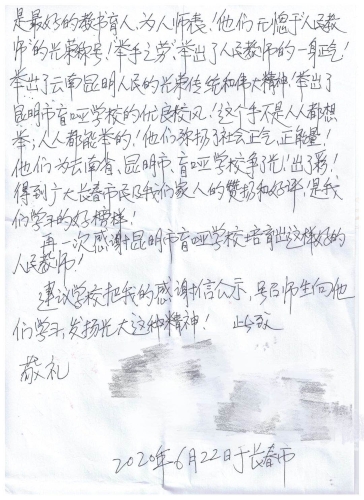 是最好的教书育人、为人师表!他们无愧于"人民教
师"的光荣称号!"举手之劳",举出了人民教师的一身正气!
举出了云南昆明人民的光荣传统和伟大精神!举出了
昆明市盲哑学校的优良校风!这个手不是人人都想
举;人人都能举的!他们弘扬了社会正气,正能量!
他们为云南省、昆明市、盲哑学校争了光!出了彩!
得到广大长春市民及我们家人的赞扬和好评!是我
们学习的好榜样!
再一次感谢昆明市盲哑学校培育出这样好的
人民教师!
建议学校把我的感谢信公示,号召师生向他
们学习,发扬光大这种精神! 此致
敬礼
2020年6月22日于长春市